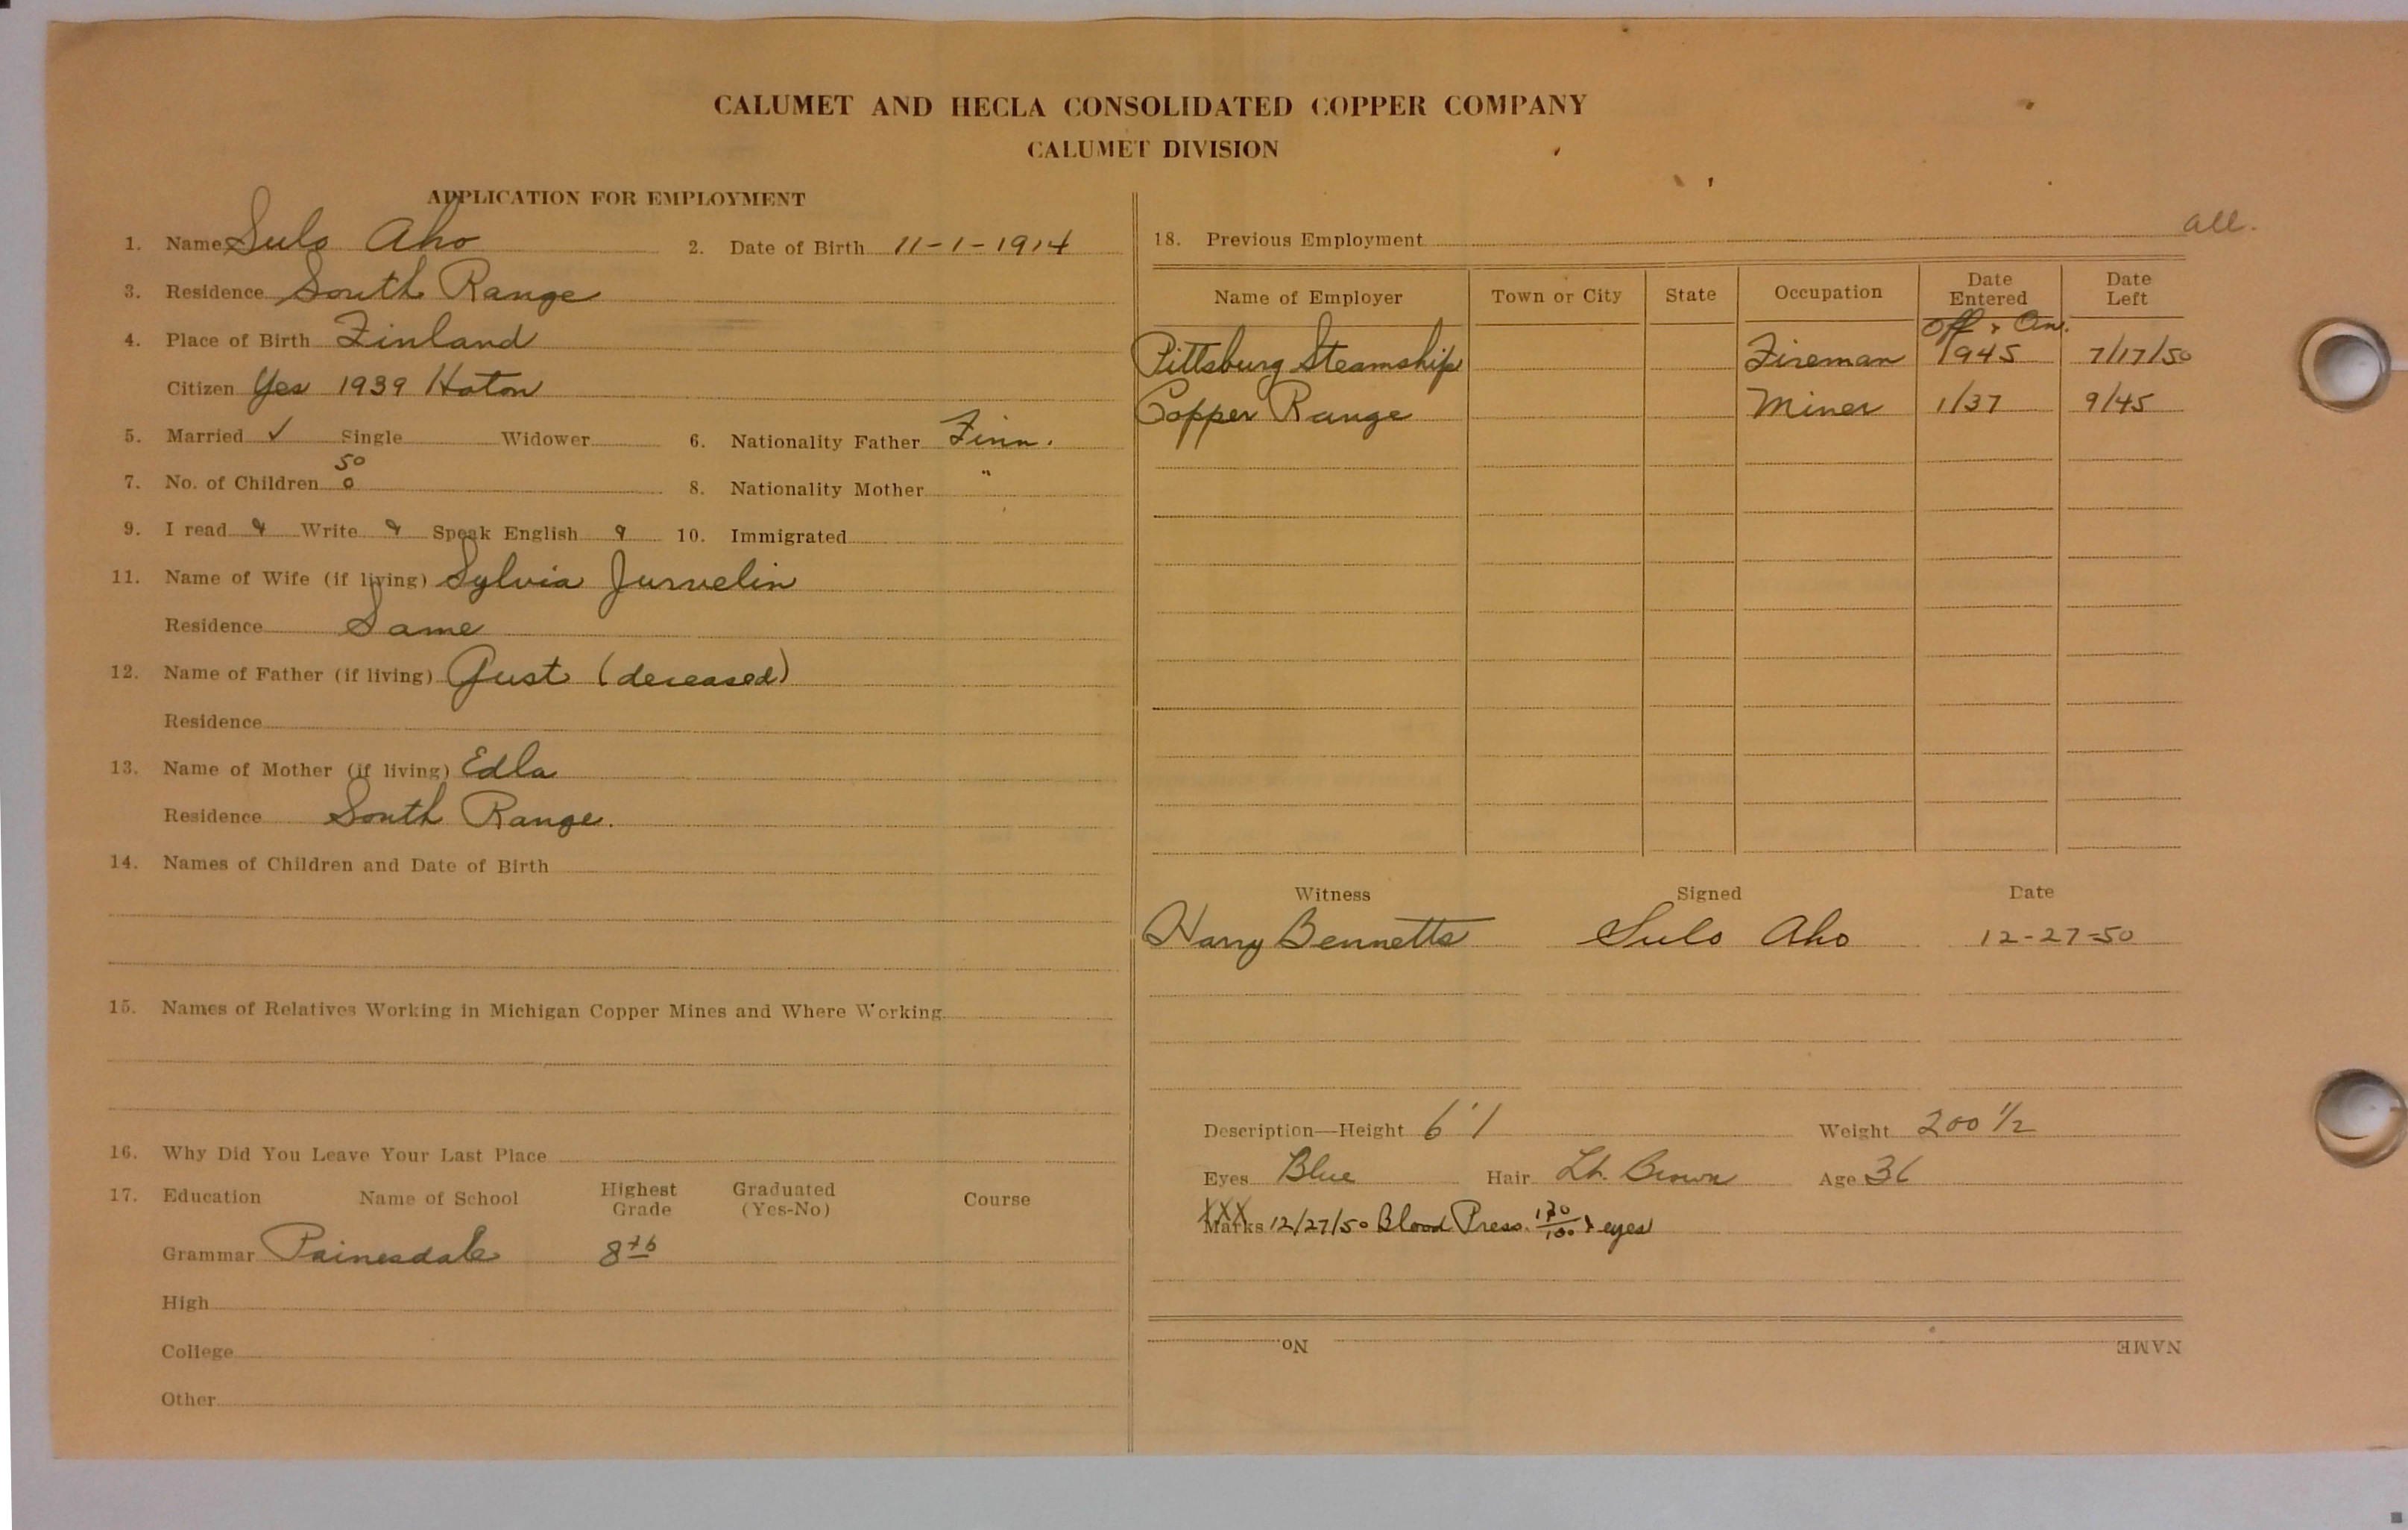 CALUMET AND HECLA CONSOLIDATED COPPER COMPANY
CALUMET DIVISION
APPLICATION FOR EMPLOYMENT
1. Name Sulo Aho 2. Date of Birth 11-1-1914
3. Residence South Range
4. Place of Birth Finland
Citizen Yes 1939 Hoton
5. Married ✓ Single Widower 6. Nationality Father Finn.
50
7. No. of Children 0 8. Nationality Mother "
9. I read Write Speak English 10. Immigrated
11. Name of Wife (if living) Sylvia Jurvelin
Residence Same
12. Name of Father (if living) Gust (deceased)
Residence
13. Name of Mother (if living) Edla
Residence South Range.
14. Names of Children and Date of Birth
15. Names of Relatives Working in Michigan Copper Mines and Where Working
16. Why Did You Leave Your Last Place
17. Education Name of School Highest Grade Graduated (Yes-No) Course
Grammar Painesdale 8th
High
College
Other
all.
18. Previous Employment
Name of Employer Town or City State Occupation Date Entered Date Left
Off & On.
Pittsburg Steamship Fireman 1945 7/17/50
Copper Range Miner 1/37 9/45
Witness Signed Date
Harry Bennetts Sulo Aho 12-27-50
Description—Height 6'1 Weight 200 1/2
Eyes Blue Hair Lt. Brown Age 36
XXX
Marks 12/27/50 Blood Press. eyes
No. NAME